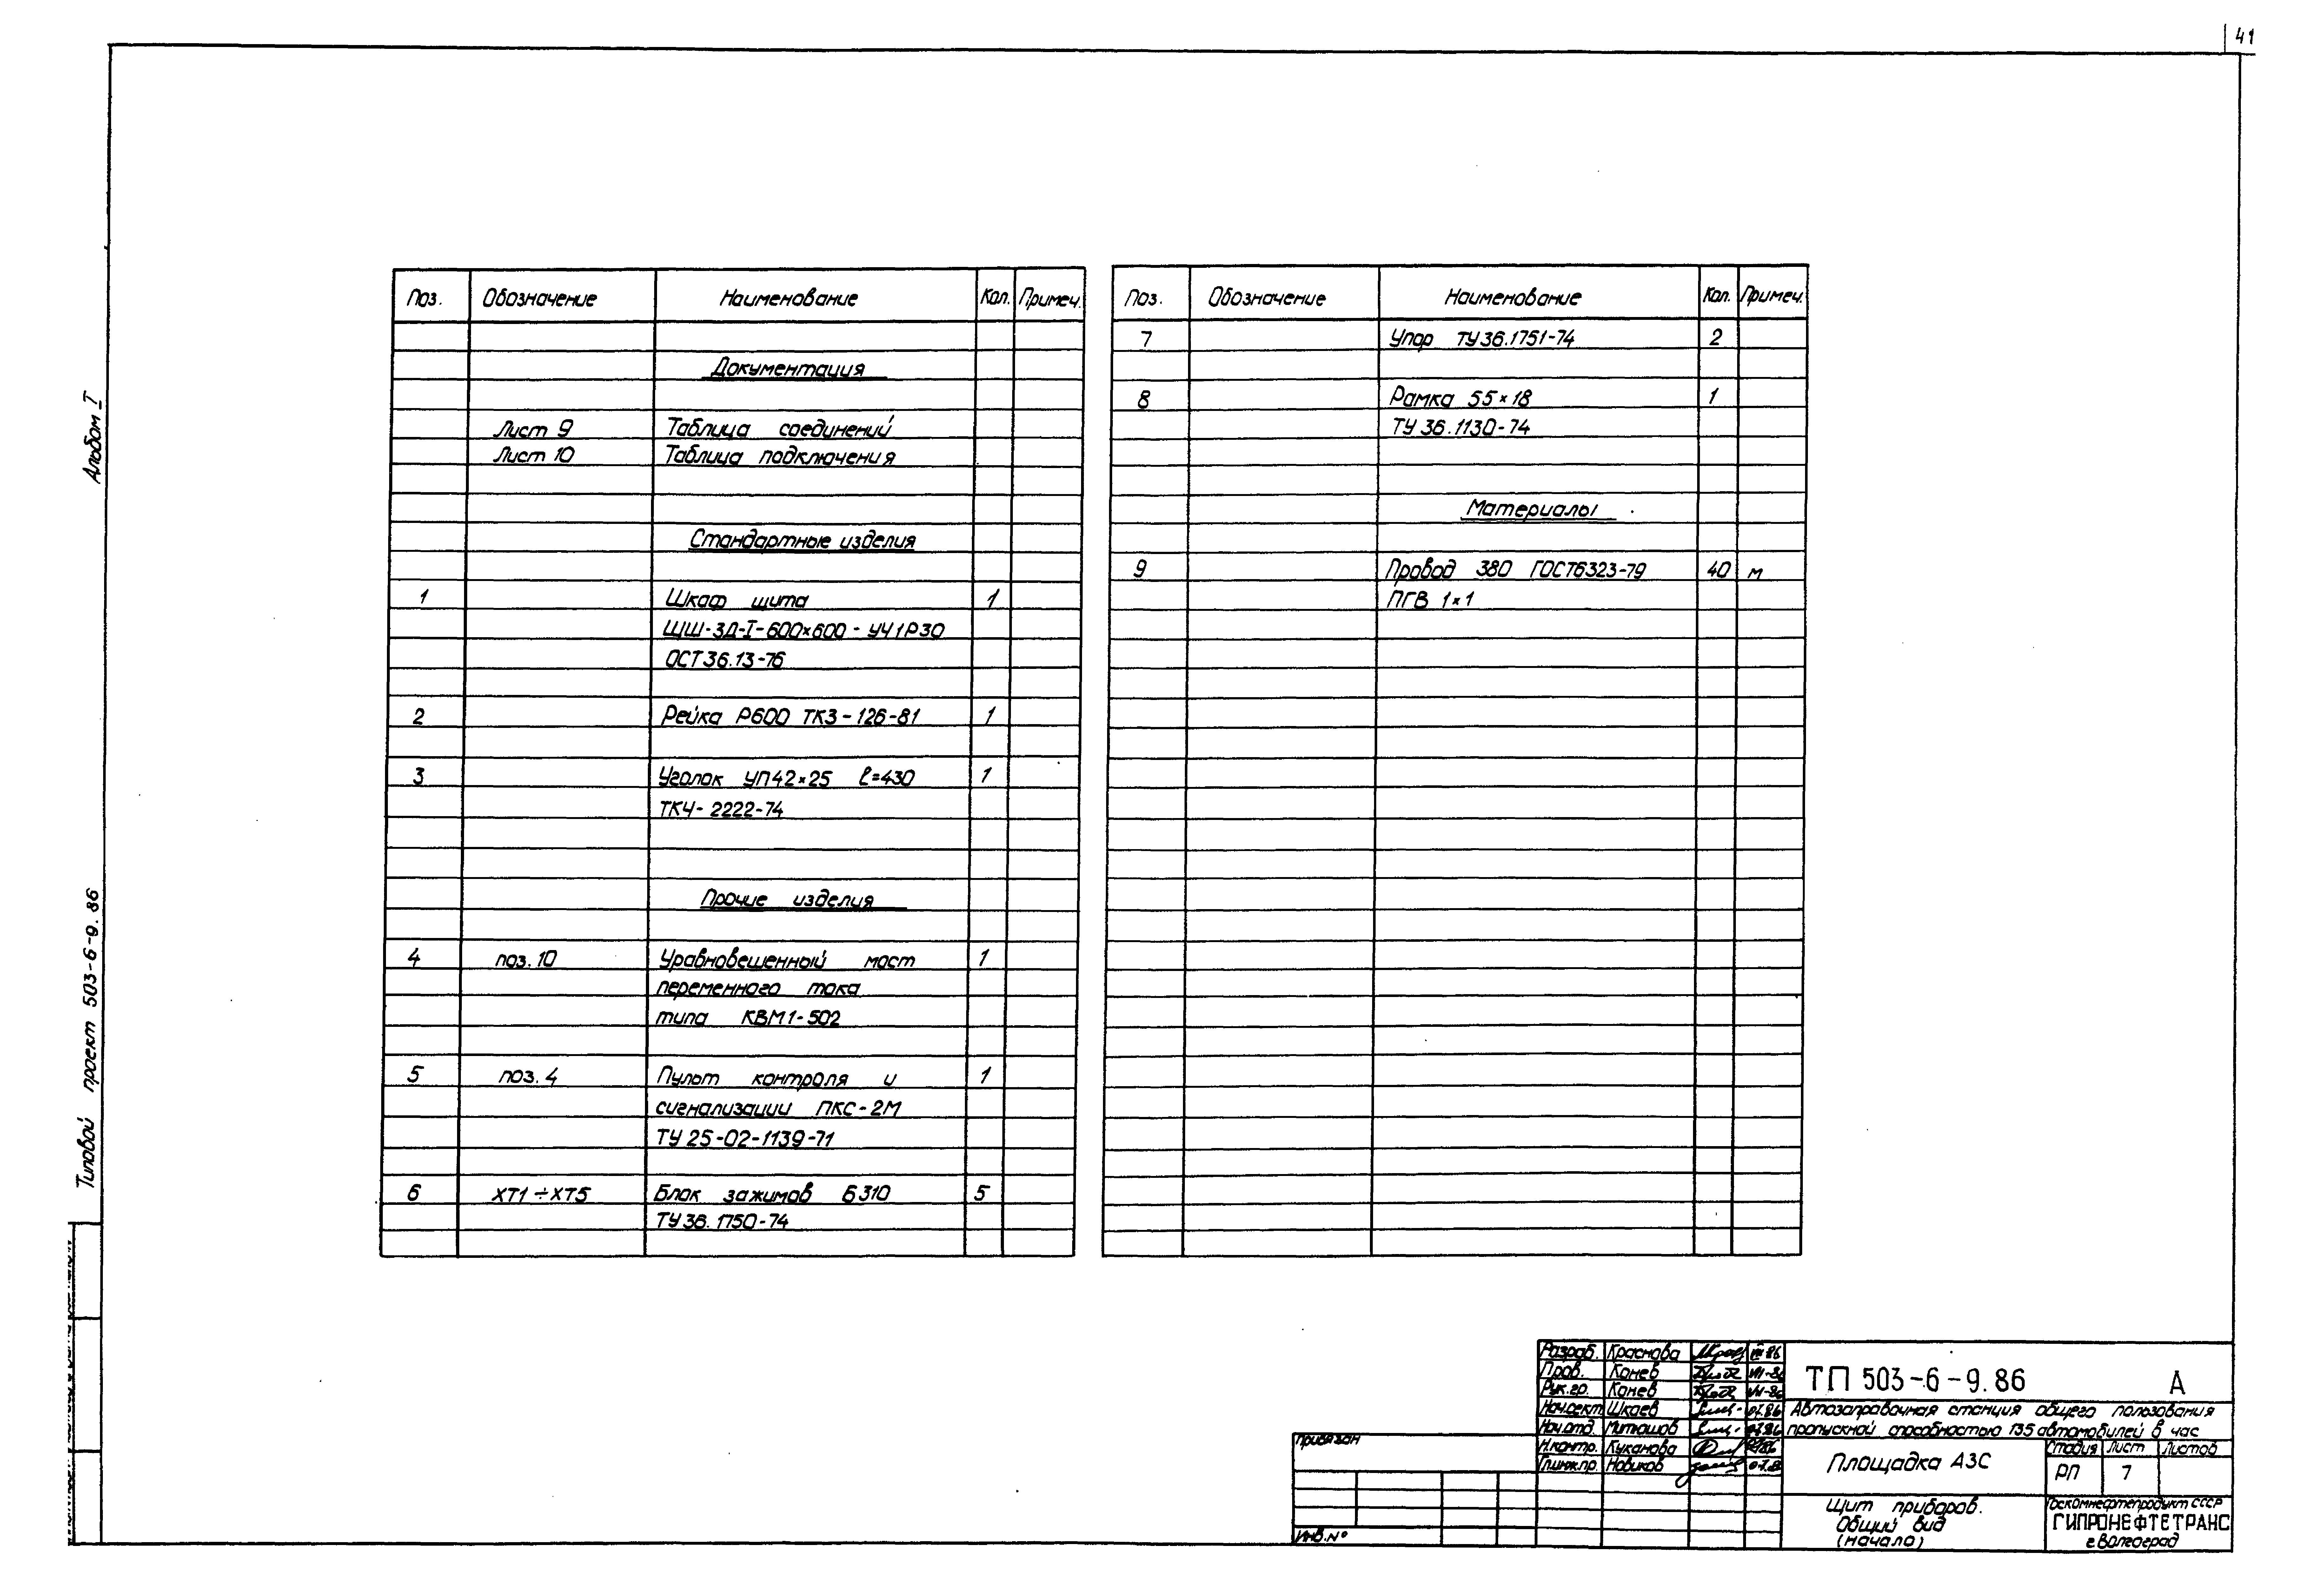 41
Альбом I
Типовой проект 503-6-9.86
Поз. Обозначение Наименование Кол. Примеч.
Документация
Лист 9 Таблица соединений
Лист 10 Таблица подключения
Стандартные изделия
1 Шкаф щита 1
ЩШ-3Д-I-600×600-УЧ1Р30
ОСТ36.13-76
2 Рейка Р600 ТК3-126-81 1
3 Уголок УП42×25 ℓ=430 1
ТКЧ-2222-74
Прочие изделия
4 поз.10 Уравновешенный мост 1
переменного тока
типа КВМ1-502
5 поз.4 Пульт контроля и 1
сигнализации ПКС-2М
ТУ 25-02-1139-71
6 ХТ1÷ХТ5 Блок зажимов Б310 5
ТУ36.1750-74
Поз. Обозначение Наименование Кол. Примеч.
7 Упор ТУ36.1751-74 2
8 Рамка 55×18 1
ТУ 36.1130-74
Материалы
9 Провод 380 ГОСТ6323-79 40 м
ПГВ 1×1
Привязан
Инв.№
Разраб. Краснова
Пров. Конев
Рук.гр. Конев
Нач.сект. Шкаев 07.86
Нач.отд. Митюшов 07.86
Н.контр. Куканова
Гл.инж.пр. Новиков
ТП 503-6-9.86 А
Автозаправочная станция общего пользования
пропускной способностью 135 автомобилей в час
Площадка АЗС
Стадия Лист Листов
РП 7
Щит приборов.
Общий вид
(начало)
Госкомнефтепродукт СССР
ГИПРОНЕФТЕТРАНС
г.Волгоград